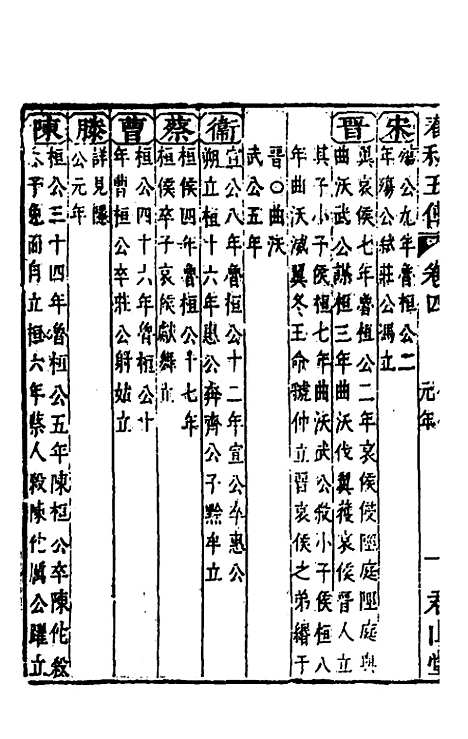 春秋五傳
卷四
元年
君山堂
宋
殤公九年魯桓公二
年殤公弑莊公馮立
晉
哀侯七年魯桓公二年哀侯侵陘庭陘庭與
曲沃武公謀桓三年曲沃伐翼獲哀侯晉人立
其子小子侯桓七年曲沃武公殺小子侯桓八
年曲沃滅翼冬王命虢仲立晉哀侯之弟緡于
晉○曲沃
武公五年
衞
宣公八年魯桓公十二年宣公卒惠公
朔立桓十六年惠公奔齊公子黔牟立
蔡
桓侯四年魯桓公十七年
桓侯卒子哀侯獻舞立
曹
桓公四十六年魯桓公十
年曹桓公卒莊公射姑立
滕
詳見隱
公元年
陳
桓公三十四年魯桓公五年陳桓公卒陳佗殺
太子免而自立桓六年蔡人殺陳佗厲公躍立